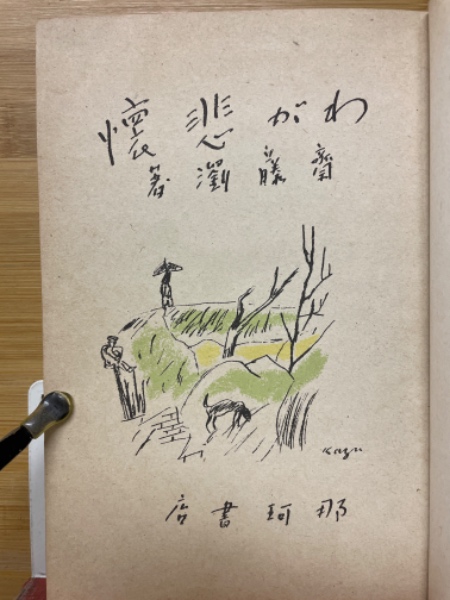 わが悲懐
齋藤瀏著
Kazu
那珂書店